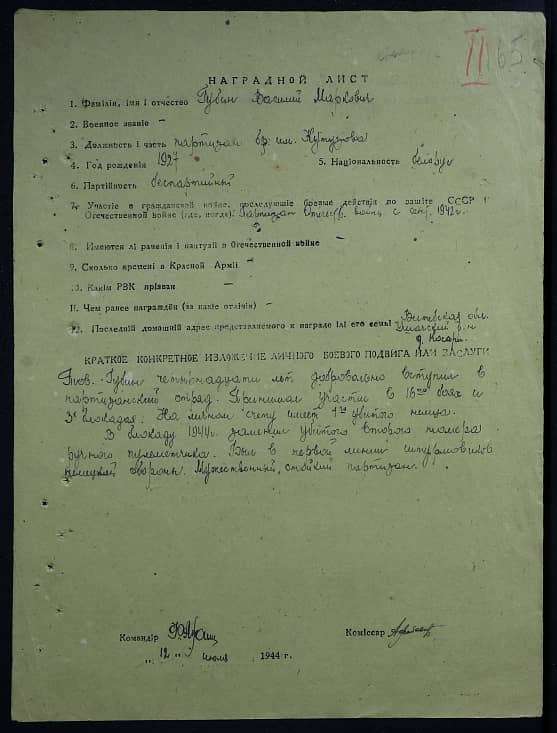 II 65
НАГРАДНОЙ ЛИСТ
1. Фамілія, імя і отчество Губин Василий Маркович
2. Военное званіе –
3. Должность і часть партизан бр. им. Кутузова
4. Год рожденія 1927 5. Національность белорус
6. Партійность беспартийный
7. Участіе в гражданской войне, последующіе боевые действія по защіте СССР і
Отечественной войне (где, когда). Партизан Отечеств. войны с сент. 1942 г.
8. Имеются лі раненія і кантузіі в Отечественной войне –
9. Сколько времені в Красной Арміі –
10. Какім РВК прізван –
11. Чем ранее награждён (за какіе отлічія) –
12. Последній домашній адрес представляемого к награде ілі его семьі Витебская обл.
Ушачский р-н
д. Косари
КРАТКОЕ КОНКРЕТНОЕ ИЗЛОЖЕНИЕ ЛИЧНОГО БОЕВОГО ПОДВИГА ИЛИ ЗАСЛУГИ
Тов. Губин четырнадцати лет добровольно вступил в
партизанский отряд. Принимал участие в 16ти боях и
3х блокадах. На личном счету имеет 1го убитого немца.
В блокаду 1944 г. заменил убитого второго номера
ручного пулеметчика. Был в первой линии штурмовиков
немецкой обороны. Мужественный, стойкий партизан.
Командір
Комісcар
„ 12 „ июля 1944 г.